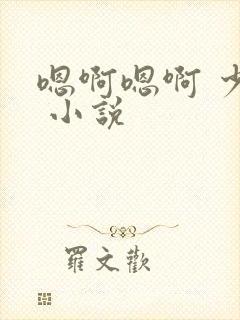 嗯啊嗯啊 少
小說
羅文歡